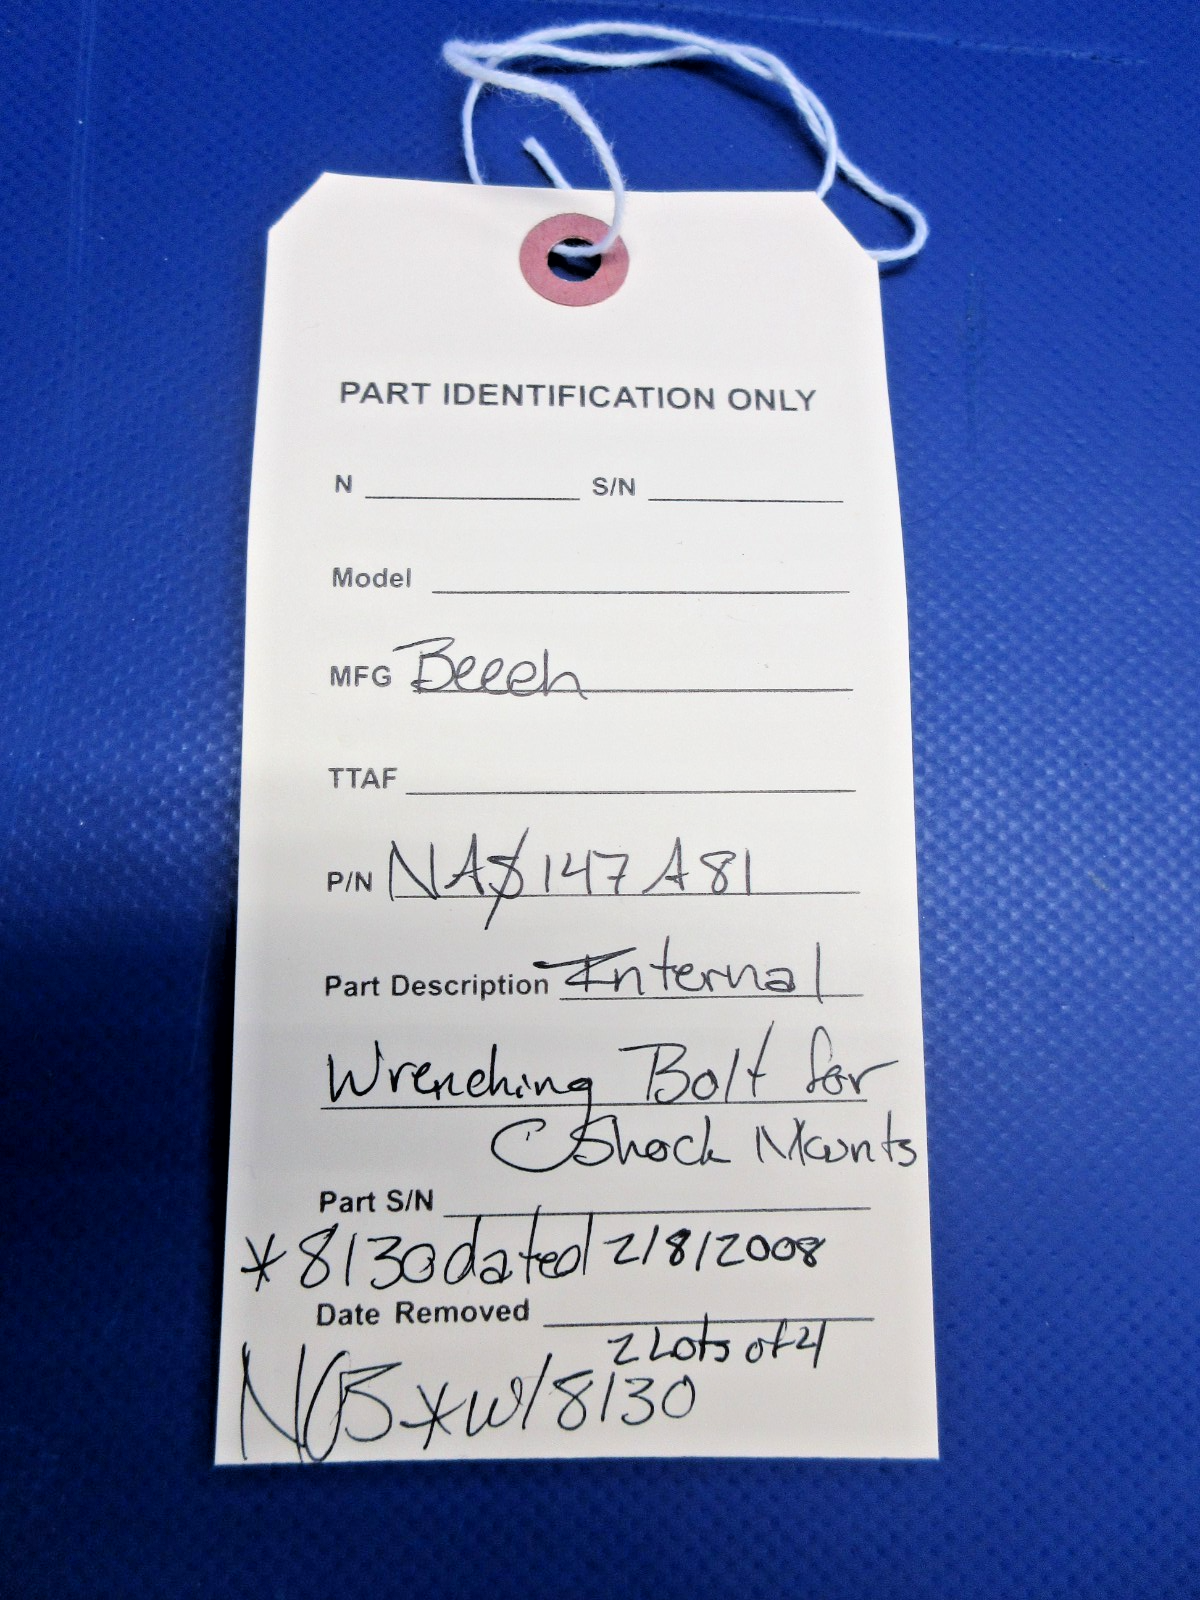 PART IDENTIFICATION ONLY
N S/N
Model
MFG Beech
TTAF
P/N NAS147A81
Part Description Internal
Wrenching Bolt for
Shock Mounts
Part S/N
*8130 dated 2/8/2008
Date Removed
2 Lots of 4
NOS * w/8130